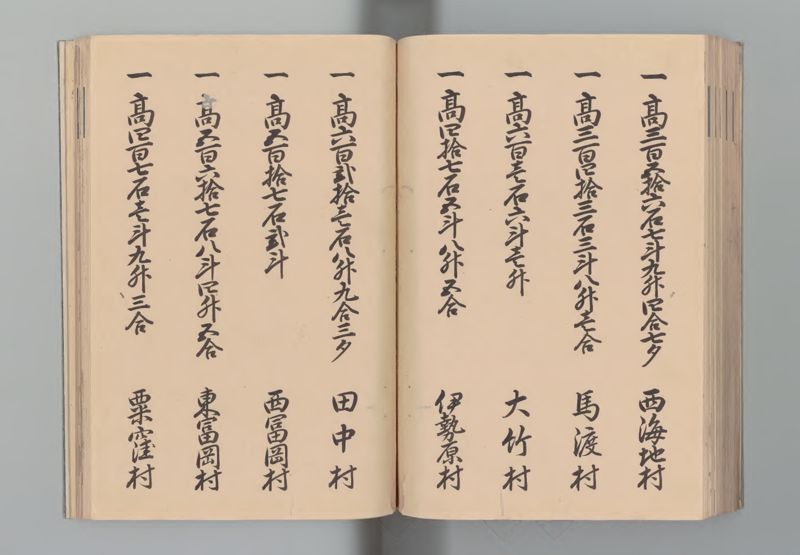 一 高三百五拾六石七斗九升四合七夕 西海地村
一 高三百四拾三石三斗八升壱合 馬渡村
一 高六百壱石六斗壱升 大竹村
一 高四拾七石五斗八升五合 伊勢原村
一 高六百弐拾壱石八升九合三夕 田中村
一 高五百拾七石弐斗 西冨岡村
一 高五百六拾七石八斗四升五合 東冨岡村
一 高四百七石壱斗九升三合 粟窪村